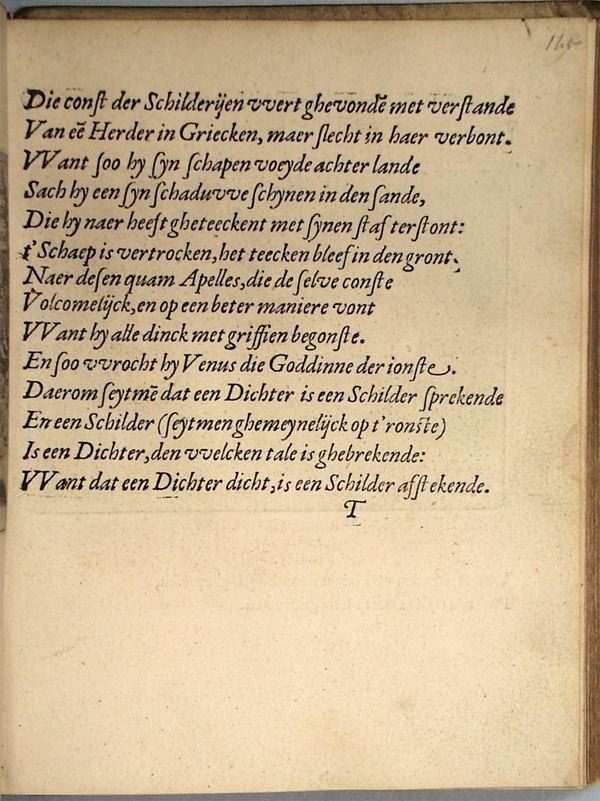 145
Die conſt der Schilderijen vvert ghevondē met verſtande
Van eē Herder in Griecken, maer ſlecht in haer verbont.
VVant ſoo hy ſyn ſchapen voeyde achter lande
Sach hy een ſyn ſchaduvve ſchynen in den ſande,
Die hy naer heeft gheteeckent met ſynen ſtaf terſtont:
t'Schaep is vertrocken, het teecken bleef in den gront.
Naer deſen quam Apelles, die de ſelve conſte
Volcomelijck, en op een beter maniere vont
VVant hy alle dinck met griffien begonſte.
En ſoo vvrocht hy Venus die Goddinne der ionſte.
Daerom ſeytmē dat een Dichter is een Schilder ſprekende
En een Schilder (ſeytmen ghemeynelijck op t'ronſte)
Is een Dichter, den vvelcken tale is ghebrekende:
VVant dat een Dichter dicht, is een Schilder afſtekende.
T